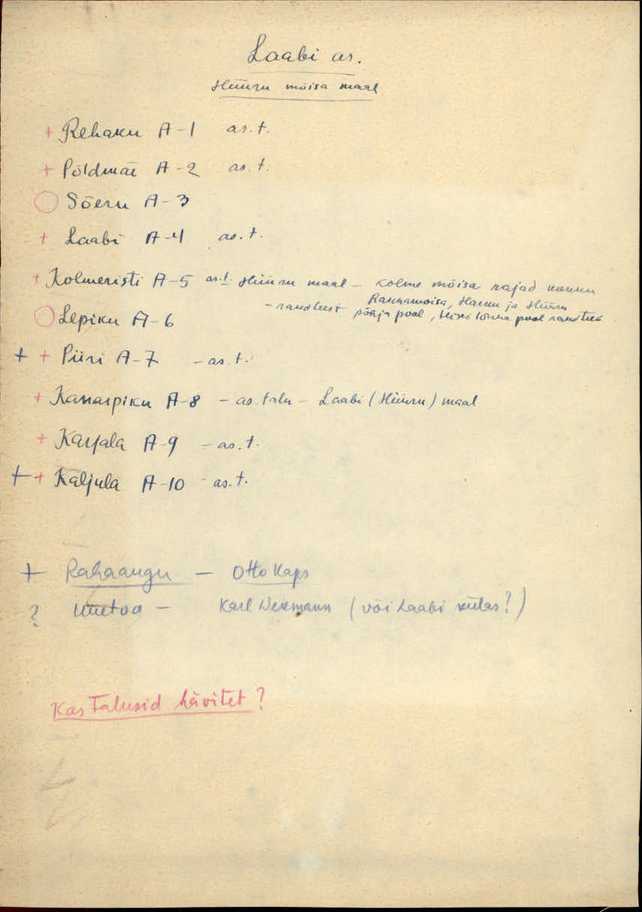 Laabi as.
Hüüru mõisa maal
+ Rehaku A-1 as.t.
+ Põldmäe A-2 as.t.
Sõeru A-3
+ Laabi A-4 as.t.
+ Kolmeristi A-5 as.t. Hüüru maal – kolme mõisa rajad
Rannamõisa, Harku ja Hüüru
– randteest põhja pool, pool randteed
Lepiku A-6
+ + Piiri A-7 – as.t.
+ Kasaspiku A-8 – as. talu – Laabi (Hüüru) maal
+ Karjala A-9 – as.t.
+ + Kaljula A-10 – as.t.
+ Rahaaugu – Otto Kaps
? Uuetoa – Karl (või Laabi külas?)
Kas Talusid hävitet?